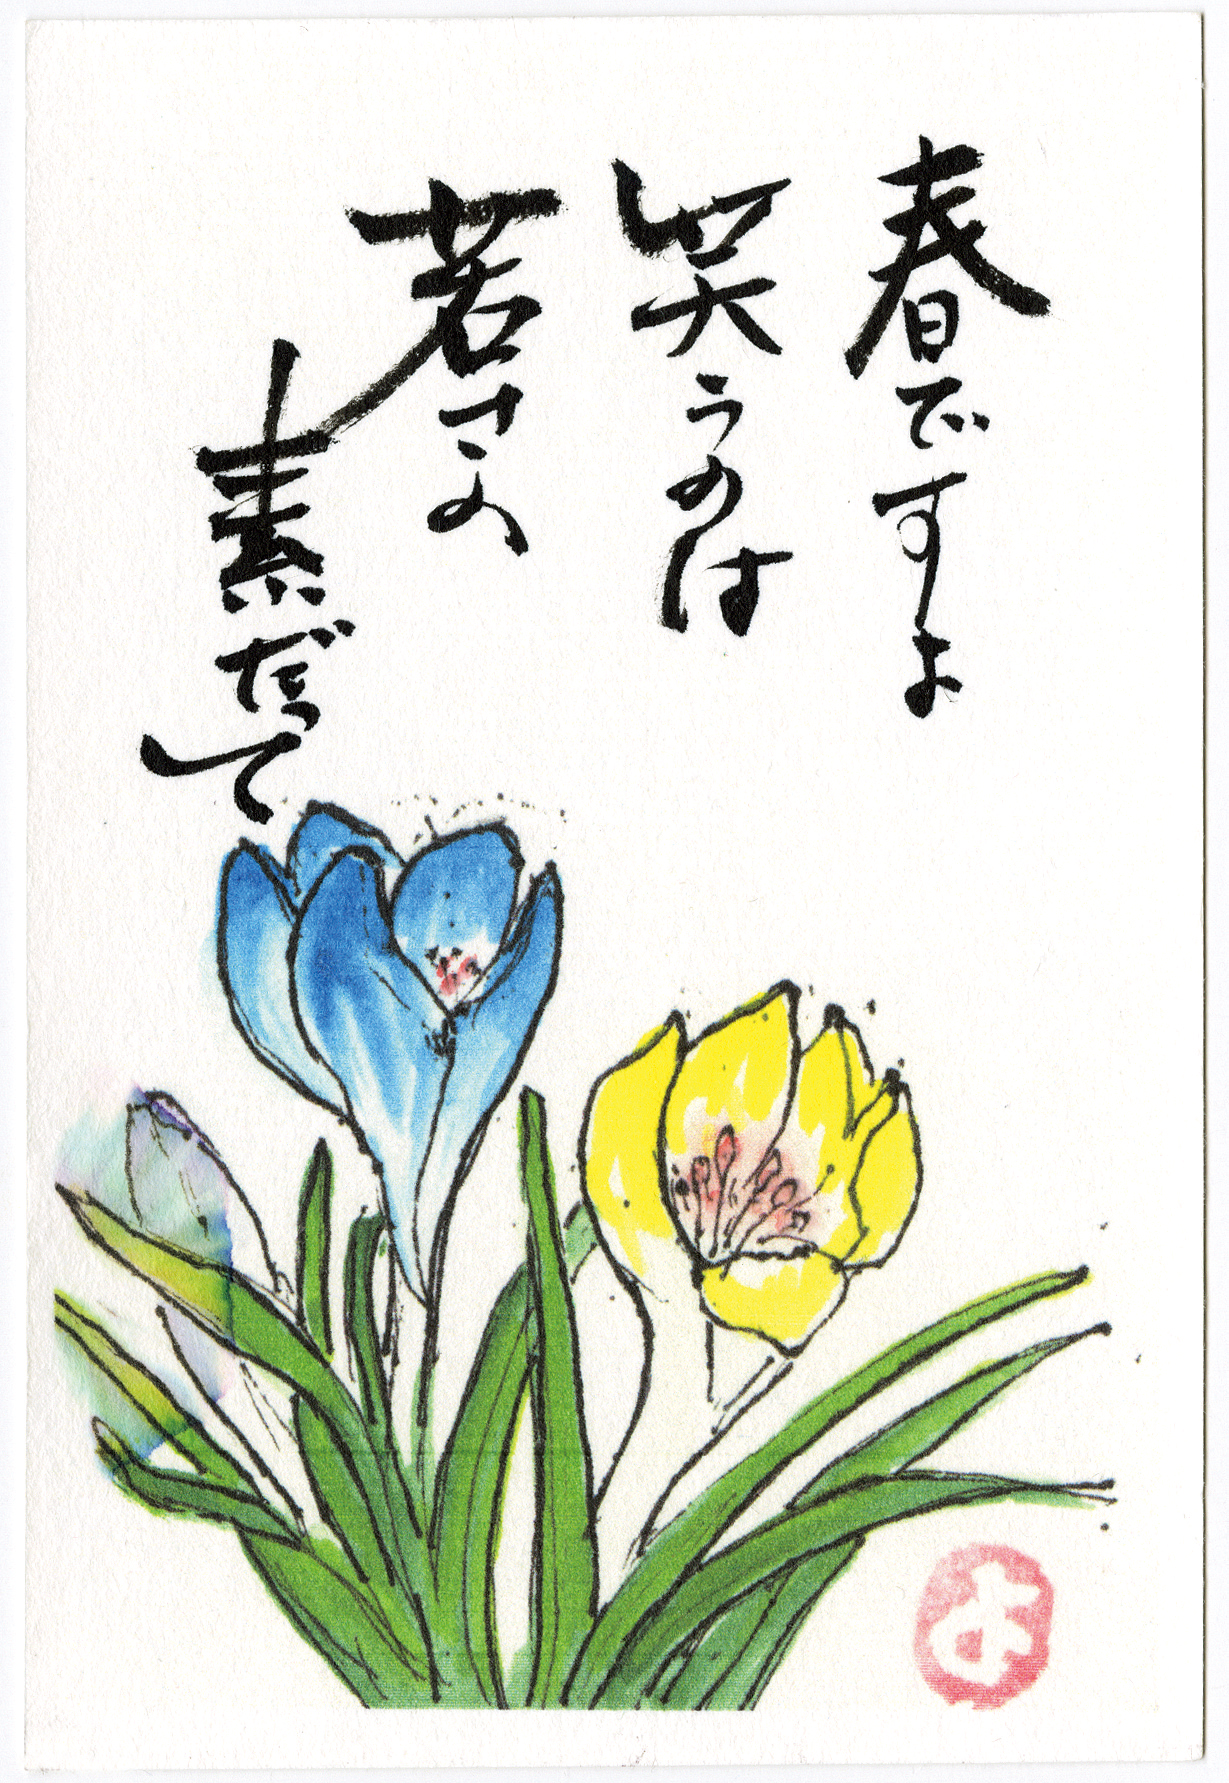 春ですよ
笑うのは
若さの
素だって
よ